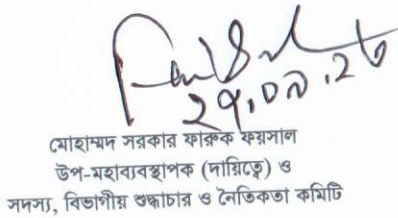 ২৭.০৯.২৬
মোহাম্মদ সরকার ফারুক ফয়সাল
উপ-মহাব্যবস্থাপক (দায়িত্বে) ও
সদস্য, বিভাগীয় শুদ্ধাচার ও নৈতিকতা কমিটি